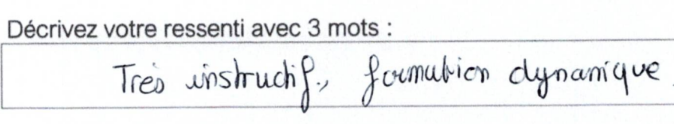 Décrivez votre ressenti avec 3 mots :
Très instructif, formation dynamique